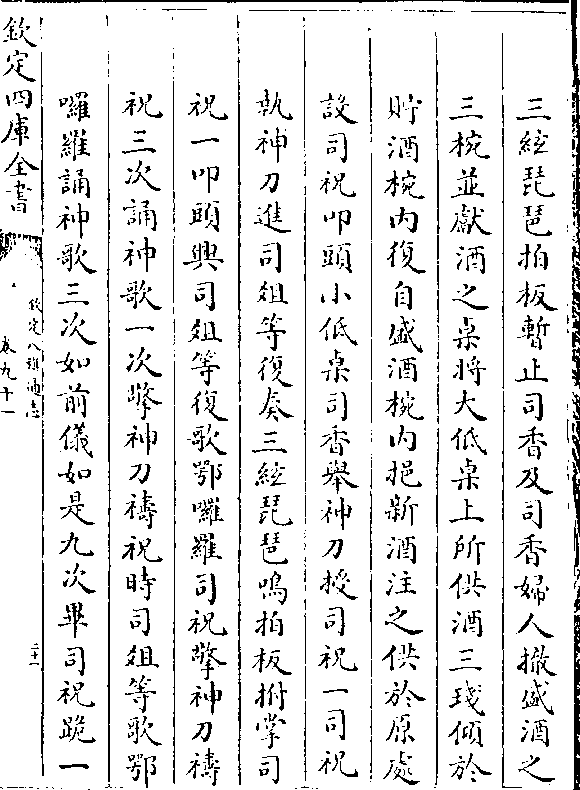 三絃琵琶拍板暫止司香及司香婦人撤盛酒之
三椀並獻酒之桌將大低桌上所供酒三琖傾於
貯酒椀内復自盛酒椀内挹新酒注之供於原處
設司祝叩頭小低桌司香舉神刀授司祝一司祝
執神刀進司俎等復奏三絃琵琶鳴拍板拊掌司
祝一叩頭興司俎等復歌鄂囉羅司祝擎神刀禱
祝三次誦神歌一次擎神刀禱祝時司俎等歌鄂
囉羅誦神歌三次如前儀如是九次畢司祝跪一
欽定四庫全書
欽定八旗通志
卷九十一
二十一